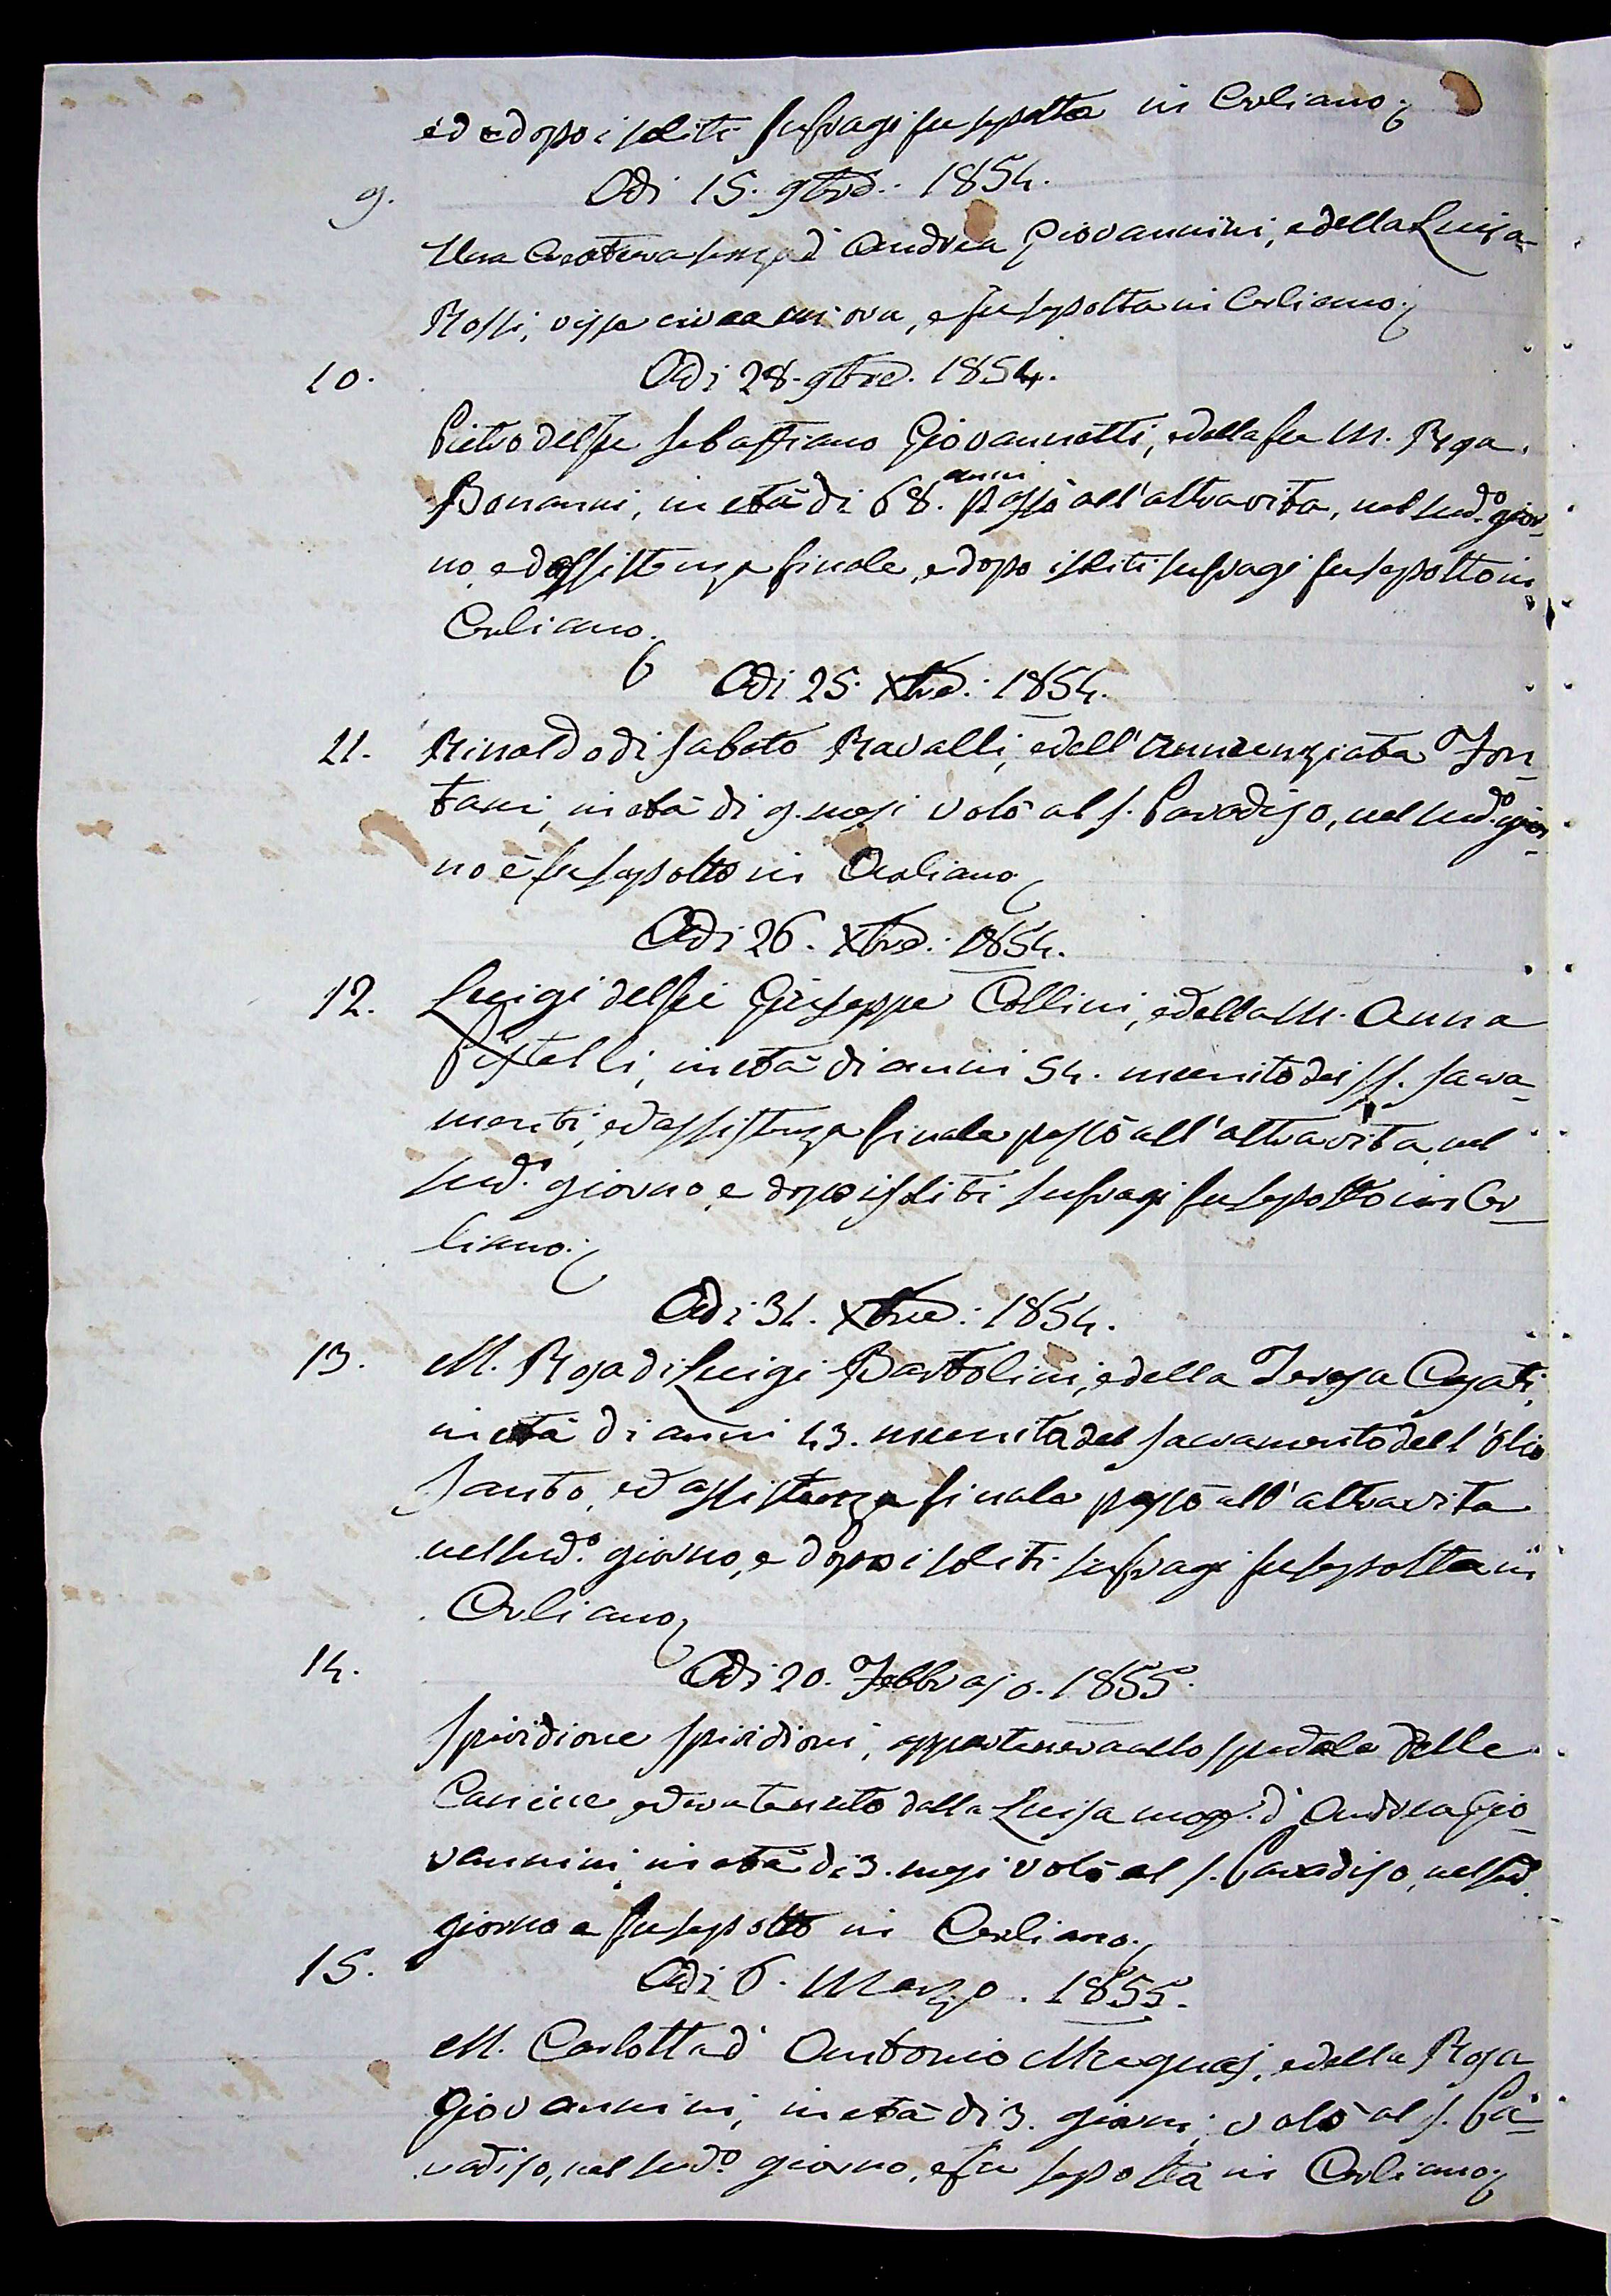 ed e dopo i soliti sufragi fu sepolta in Corliano.
9. Adi 15. 9bre. 1854.
Una Creatura senza d'Andrea Giovannini, e della Luisa
Rossi, visse circa un ora, e fu sepolta in Corliano.
10. Adi 28. 9bre. 1854.
Pietro del fu Sebastiano Giovannetti, e della fu M. Rosa
Bonanni, in età di 68. anni passò all'altra vita, nel sud.o gior-
no, ed assistenza finale, e dopo i soliti sufragi fu sepolto in
Corliano.
Adi 25. Xbre. 1854.
11. Rinaldo di Sabato Ravalli, e dell'Annunziata Fon-
tani, in età di 9. mesi volò al S. Paradiso, nel sud.o gior-
no e fu sepolto in Corliano
Adi 26. Xbre. 1854.
12. Luigi del fu Giuseppe Collini, e della M. Anna
Pistelli, in età di anni 54. munito dei SS. Sacra-
menti, ed assistenza finale passò all'altra vita nel
sud.o giorno, e dopo i soliti sufragi fu sepolto in Cor-
liano.
Adi 31. Xbre. 1854.
13. M. Rosa di Luigi Bartolini, e della Teresa
in età di anni 43. munita del Sacramento dell'Olio
Santo, ed assistenza finale passò all'altra vita
nel sud.o giorno, e dopo i soliti sufragi fu sepolta in
Corliano
14. Adi 20. Febbrajo. 1855.
Spiridione Spiridioni, apparteneva allo spedale delle
ed era tenuto dalla Luisa mog. d'Andrea Gio-
vannini, in età di 3. mesi volò al S. Paradiso, nel sud.
giorno e fu sepolto in Corliano.
15. Adi 6. Marzo. 1855.
M. Carlotta d'Antonio Magnaj, e della Rosa
Giovannini, in età di 3. giorni, volò al S. Pa-
radiso, nel sud.o giorno, e fu sepolta in Corliano